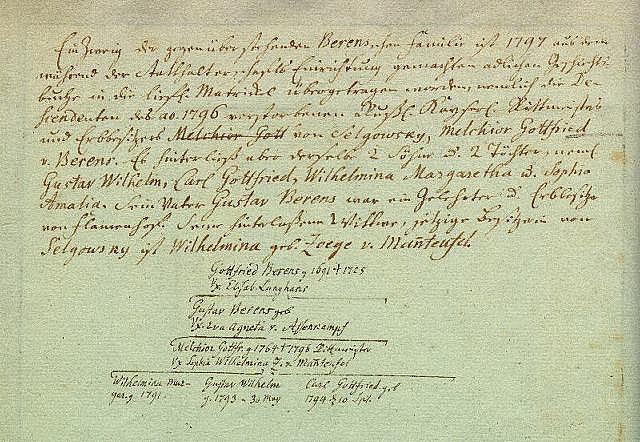 Ein Zweig der gegenüber stehenden Berensschen Familie ist 1797 aus dem
während der Statthalterschafts Einrichtung gemachten adlichen Geschlechts
buche in die liefl. Matrikel übergetragen worden, nemlich die De-
scendenten des ao. 1796 verstorbenen Rußl. Kayserl. Rittmeisters
und Erbbesitzers Melchior Gott von Selgowsky, Melchior Gottfried
v. Berens. Es hinterließ aber derselbe 2 Söhne u. 2 Töchter, neml.
Gustav Wilhelm, Carl Gottfried, Wilhelmina Margaretha u. Sophia
Amalia. Sein Vater Gustav Berens war ein Gelehrter u. Erbbesitzer
von Seine hinterlaßene Wittwe, jetzige Besitzerin von
Selgowsky ist Wilhelmina geb. Zoege v. Manteufel.
Gottfried Berens g 1691 † 1725
Ux. Elisab Langhans
Gustav Berens geb
Ux. Eva Agneta v.
Melchior Gottfr. g 1764 † 1796 Rittmeister
Ux Sophia Wilhelmina Z. v. Manteufel
Wilhelmina Mar- Gustav Wilhelm Carl Gottfried geb
gar. g 1791. g. 1793 30 May 1794 10 Spt.